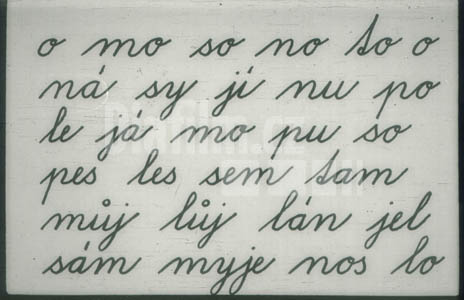 o mo so no to o
ná sy jí nu po
le já mo pu so
pes les sem tam
můj lůj lán jel
sám myje nos lo